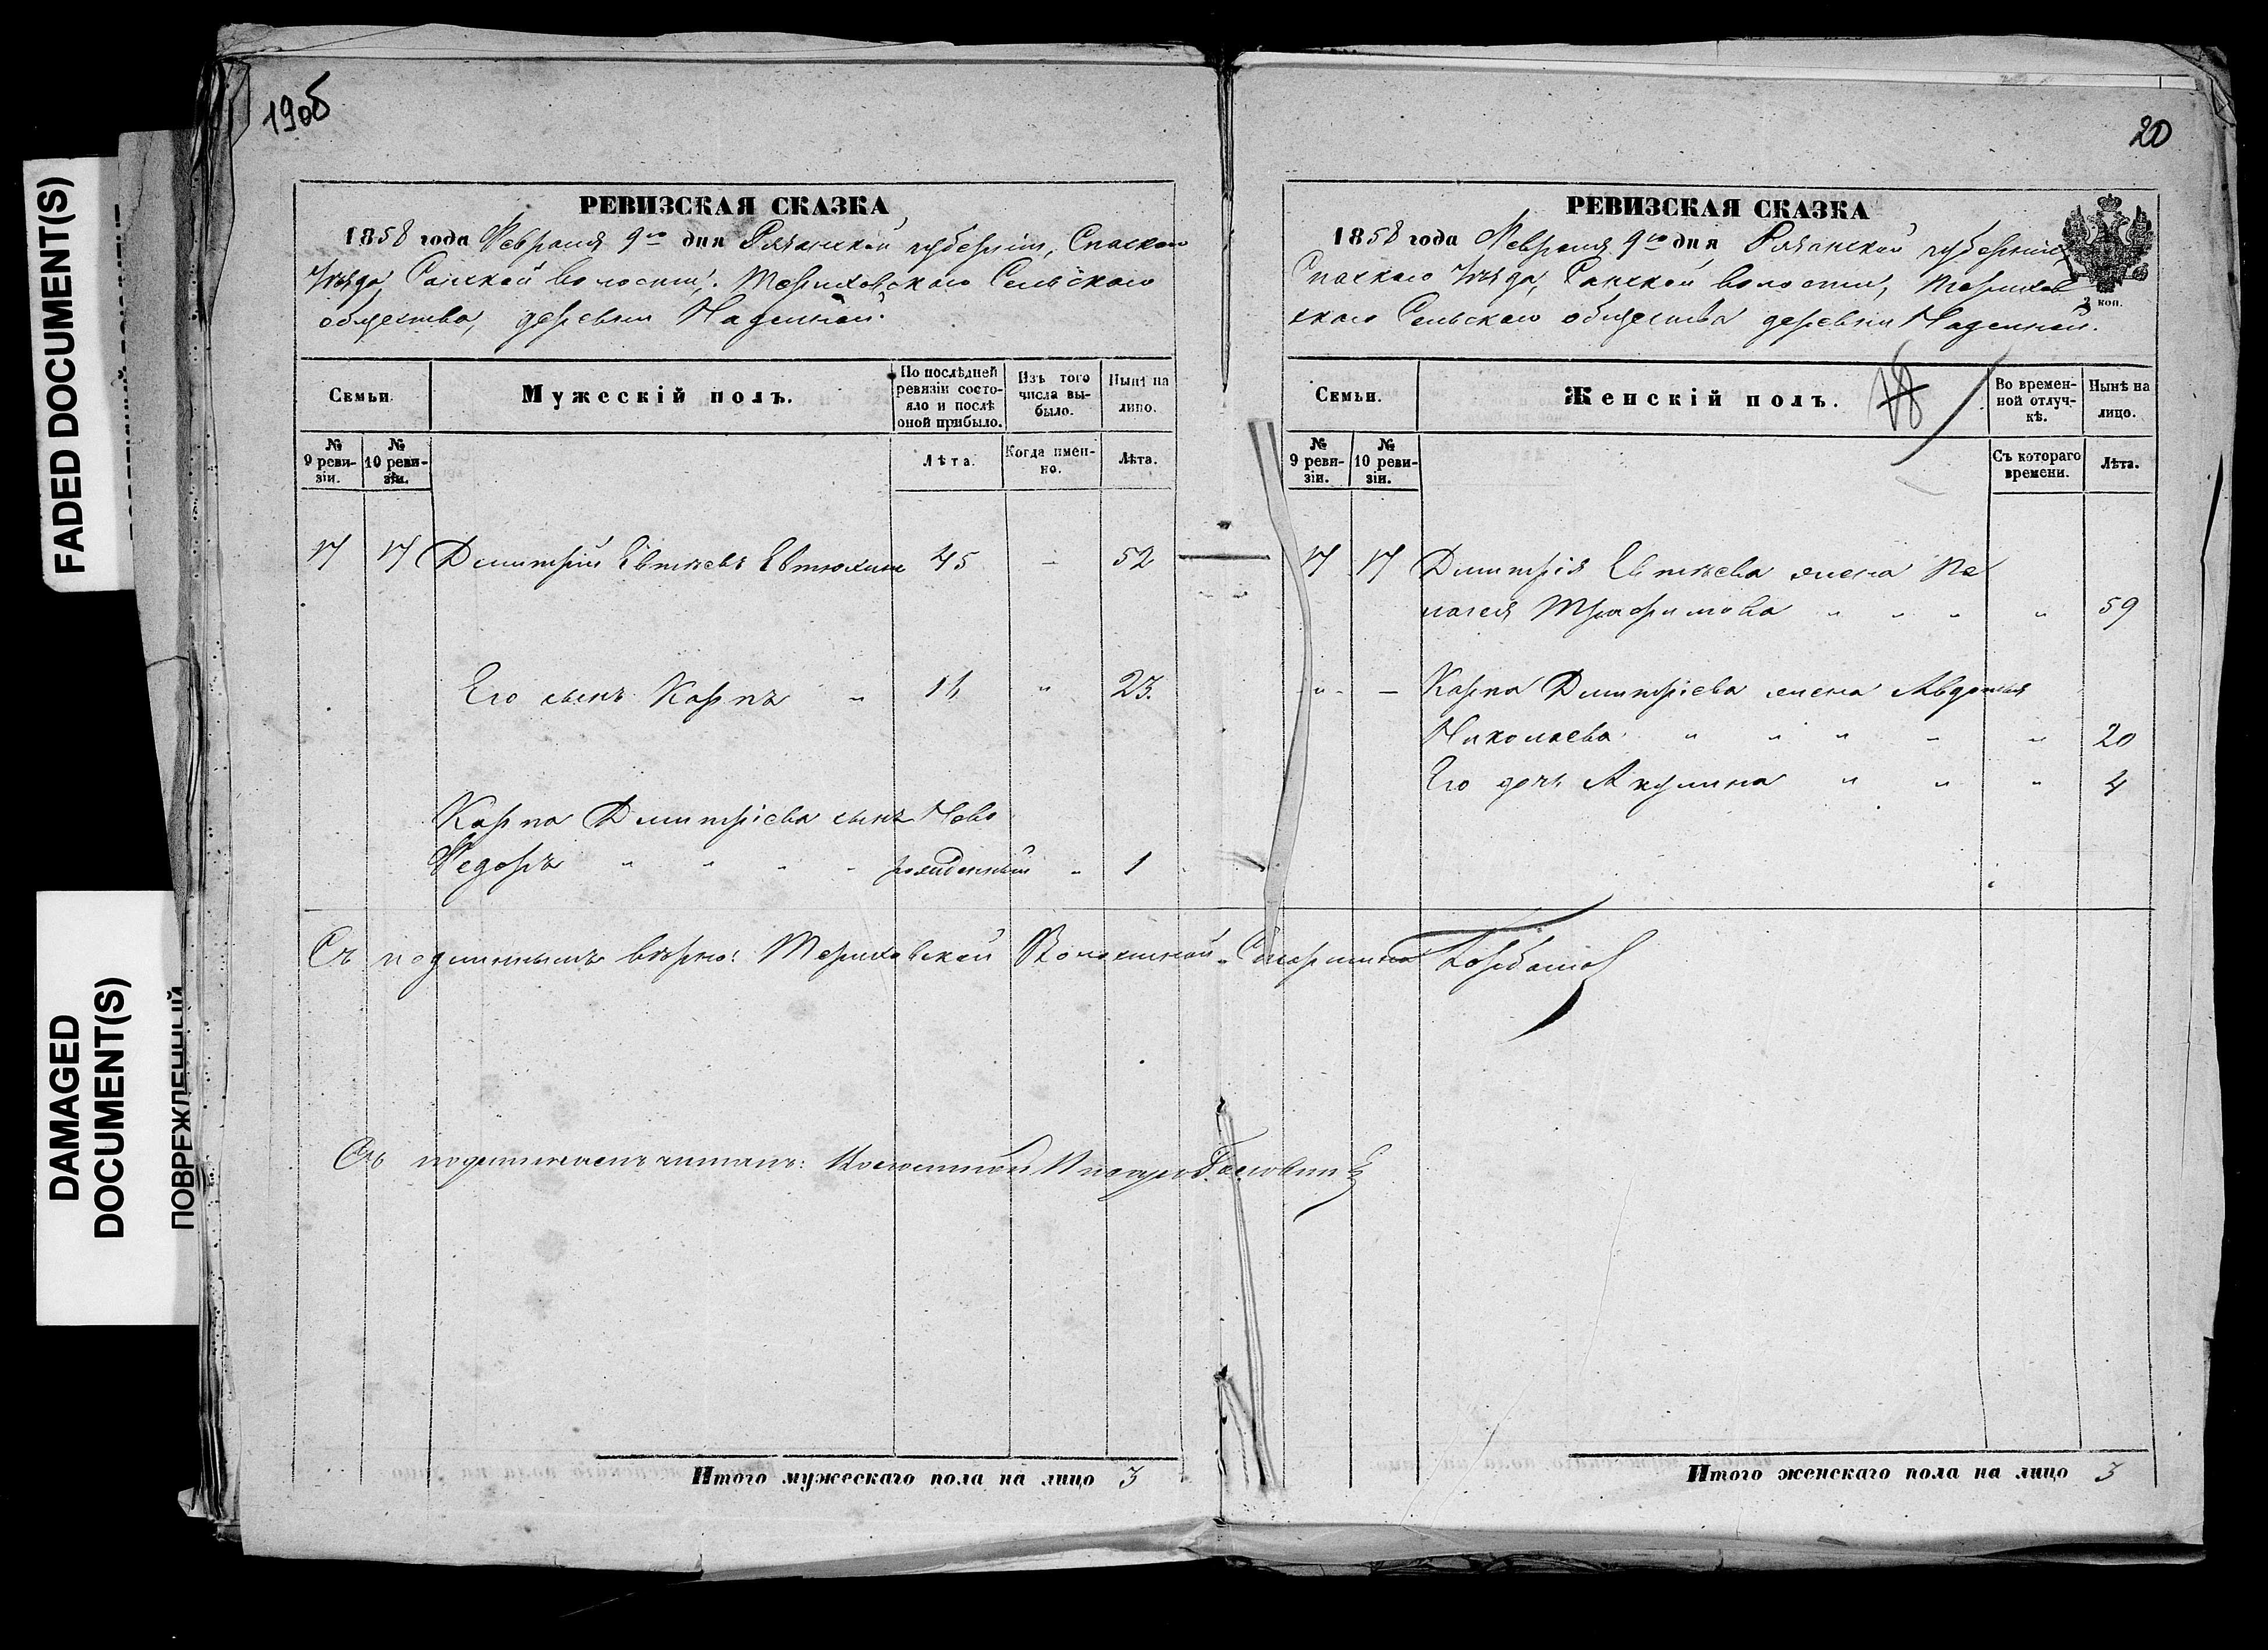 FADED DOCUMENT(S)
DAMAGED
DOCUMENT(S)
ПОВРЕЖДЕННЫЙ
19об
РЕВИЗСКАЯ СКАЗКА
1858 года Февраля 9го дня Рязанской губерніи, Спаскаго
Уѣзда, волости, Териховскаго Сельскаго
общества, деревни
Семьи.
Мужескій полъ.
По послѣдней ревизіи состояло и послѣ оной прибыло.
Изъ того числа выбыло.
Нынѣ на лицо.
№ 9 ревизіи.
№ 10 ревизіи.
Лѣта.
Когда именно.
Лѣта.
17 17 Дмитрій Евтѣевъ Евтюхин 45 - 52
Его сынъ Карпъ " 16 " 23.
Карпа Дмитріева сынъ Ново
Федоръ " " " " рожденный " 1
Съ подлиннымъ вѣрно: Териховской Волостной Старшина
Съ подлиннымъ читалъ: Волостной Писарь
Итого мужескаго пола на лицо 3
20
РЕВИЗСКАЯ СКАЗКА
1858 года Февраля 9го дня Рязанской губерніи
Спаскаго Уѣзда, волости, Терихов
скаго Сельскаго общества деревни
коп.
Семьи.
Женскій полъ.
18
Во временной отлучкѣ.
Нынѣ на лицо.
№ 9 ревизіи.
№ 10 ревизіи.
Съ котораго времени.
Лѣта.
17 17 Дмитрія Евтѣева жена Пе
лагея Трафимова " " " " 59
" - Карпа Дмитріева жена Авдотья
Николаева " " " " " 20
Его дочь Акулина " " " 4
Итого женскаго пола на лицо 3